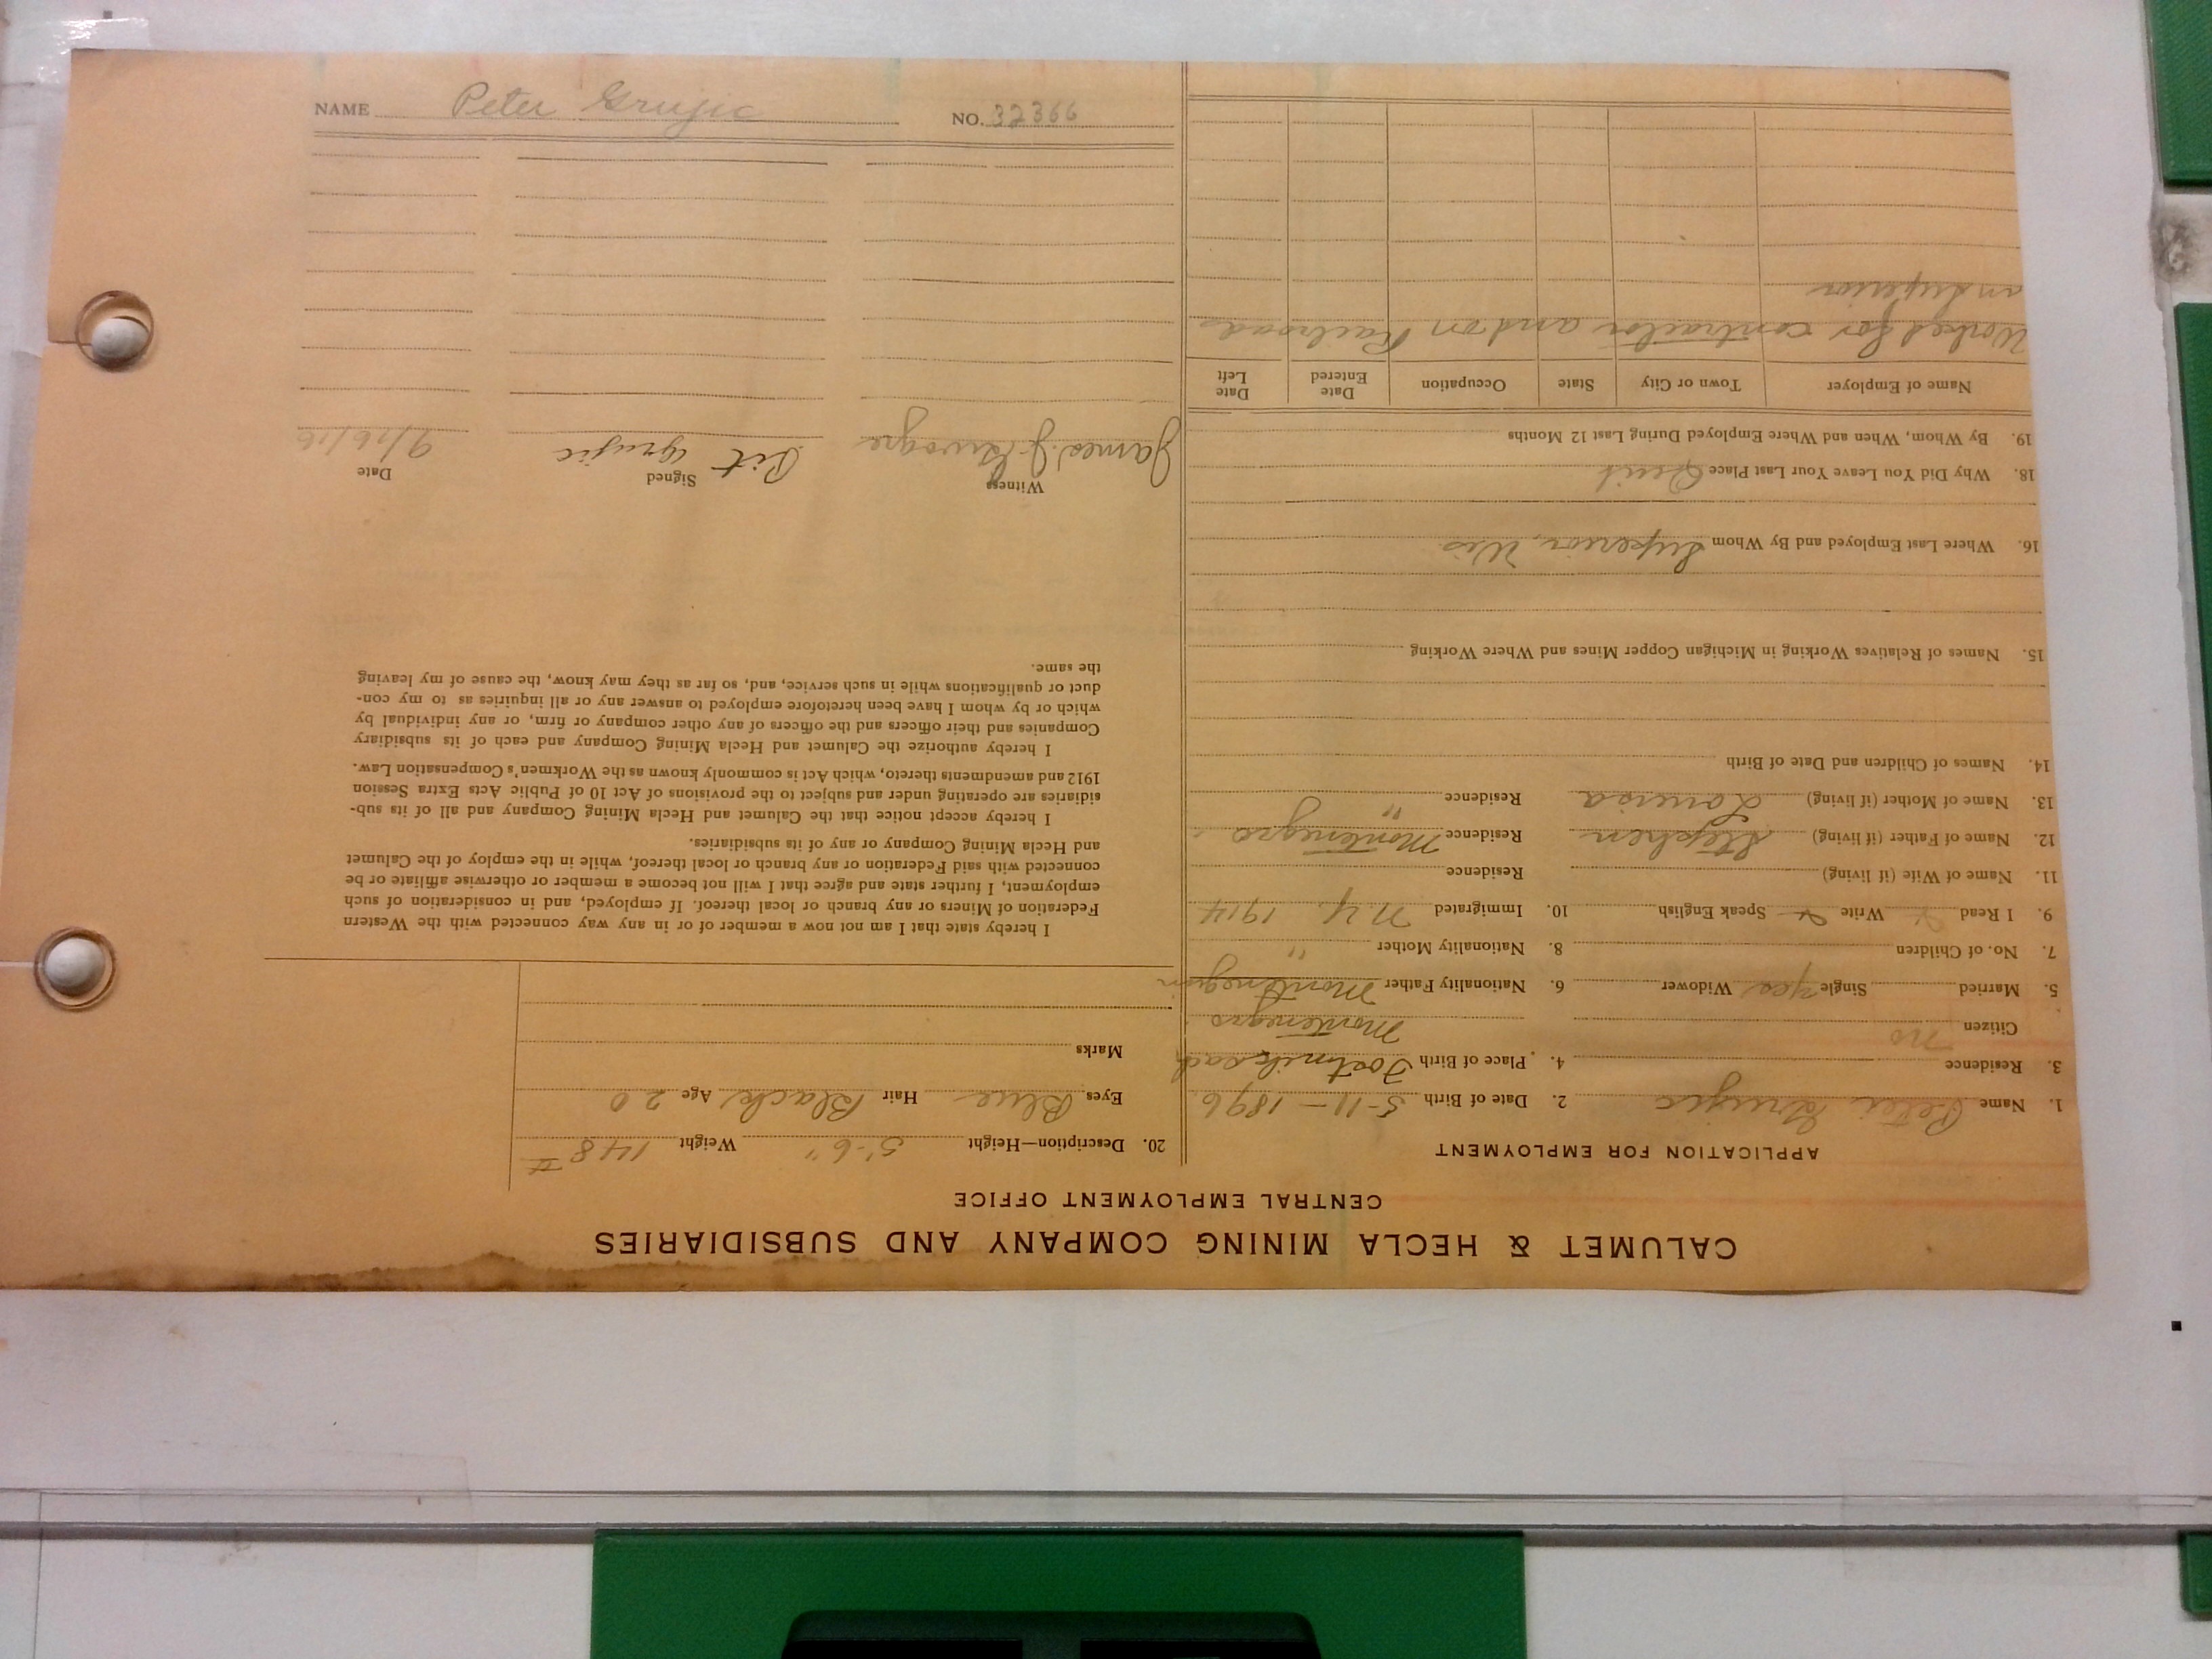 CALUMET & HECLA MINING COMPANY AND SUBSIDIARIES
CENTRAL EMPLOYMENT OFFICE
APPLICATION FOR EMPLOYMENT
1. Name Peter Grujic 2. Date of Birth 5-11-1896
3. Residence 4. Place of Birth
Citizen No Montenegro
5. Married Single Yes Widower 6. Nationality Father Montenegrin
7. No. of Children 8. Nationality Mother "
9. I Read Write Speak English 10. Immigrated N.Y. 1914
11. Name of Wife (if living) Residence
12. Name of Father (if living) Stephen Residence Montenegro
13. Name of Mother (if living) Louisa Residence "
14. Names of Children and Date of Birth
15. Names of Relatives Working in Michigan Copper Mines and Where Working
16. Where Last Employed and By Whom Superior, Wis
18. Why Did You Leave Your Last Place Quit
19. By Whom, When and Where Employed During Last 12 Months
Name of Employer Town or City State Occupation Date Entered Date Left
Worked for contractor and on Railroad
an Superior
20. Description—Height 5'-6" Weight 148 #
Eyes Blue Hair Black Age 20
Marks
I hereby state that I am not now a member of or in any way connected with the Western
Federation of Miners or any branch or local thereof. If employed, and in consideration of such
employment, I further state and agree that I will not become a member or otherwise affiliate or be
connected with said Federation or any branch or local thereof, while in the employ of the Calumet
and Hecla Mining Company or any of its subsidiaries.
I hereby accept notice that the Calumet and Hecla Mining Company and all of its sub-
sidiaries are operating under and subject to the provisions of Act 10 of Public Acts Extra Session
1912 and amendments thereto, which Act is commonly known as the Workmen's Compensation Law.
I hereby authorize the Calumet and Hecla Mining Company and each of its subsidiary
Companies and their officers and the officers of any other company or firm, or any individual by
which or by whom I have been heretofore employed to answer any or all inquiries as to my con-
duct or qualifications while in such service, and, so far as they may know, the cause of my leaving
the same.
Witness Signed Date
James J. Pit Grujic 9/16/16
NAME Peter Grujic NO. 32366